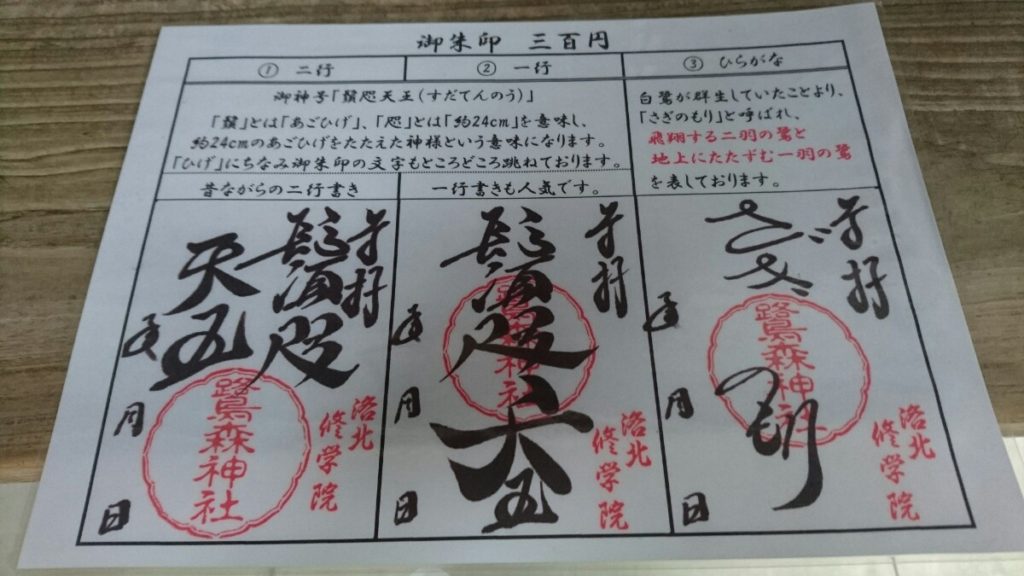 御朱印　三百円
① 二行
② 一行
③ ひらがな
御神号「鬚咫天王(すだてんのう)」
「鬚」とは「あごひげ」、「咫」とは「約24cm」を意味し、
約24cmのあごひげをたたえた神様という意味になります。
「ひげ」にちなみ御朱印の文字もところどころ跳ねております。
白鷺が群生していたことより、
「さぎのもり」と呼ばれ、
飛翔する二羽の鷺と
地上にたたずむ一羽の鷺
を表しております。
昔ながらの二行書き
一行書きも人気です。
奉拝
鬚咫
天王
年
月
日
鷺森神社
洛北
修学院
奉拝
鬚咫天王
年
月
日
鷺森神社
洛北
修学院
奉拝
さぎ
のもり
年
月
日
鷺森神社
洛北
修学院